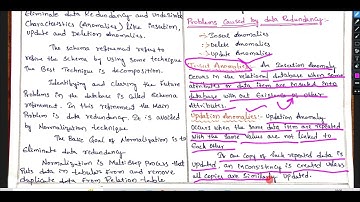 Eliminate data Redundancy and Undesirable
Characteristics (Anomalies) like Insertion,
Update and Deletion Anomalies.
The schema refinement refers to
refine the schema by using some technique
the Best Technique is decomposition.
Identifying and clearing the Future
Problems in the database is called Schema
refinement. In this refinement the Main
Problem is data redundancy. It is avoided
by Normalization technique.
The Basic Goal of Normalization is to
Eliminate data redundancy.
Normalization is Multi-Step Process that
Puts data in tabular form and remove
duplicate data from Relation table
Problems Caused by data Redundancy:-
Insert Anomalies
Delete Anomalies
Update Anomalies
Insert Anomalies:- An Insertion Anomaly
Occurs in the relational database when some
attributes or data Item are Inserted Into
database with out Existence of other
Attributes.
Updation Anomalies:- Updation Anomaly
Occurs when the same data Item are repeated
with the same values are not linked to
Each other
If one Copy of such repeated data is
updated, an Inconsistency is created unless
all copies are Similarly updated.